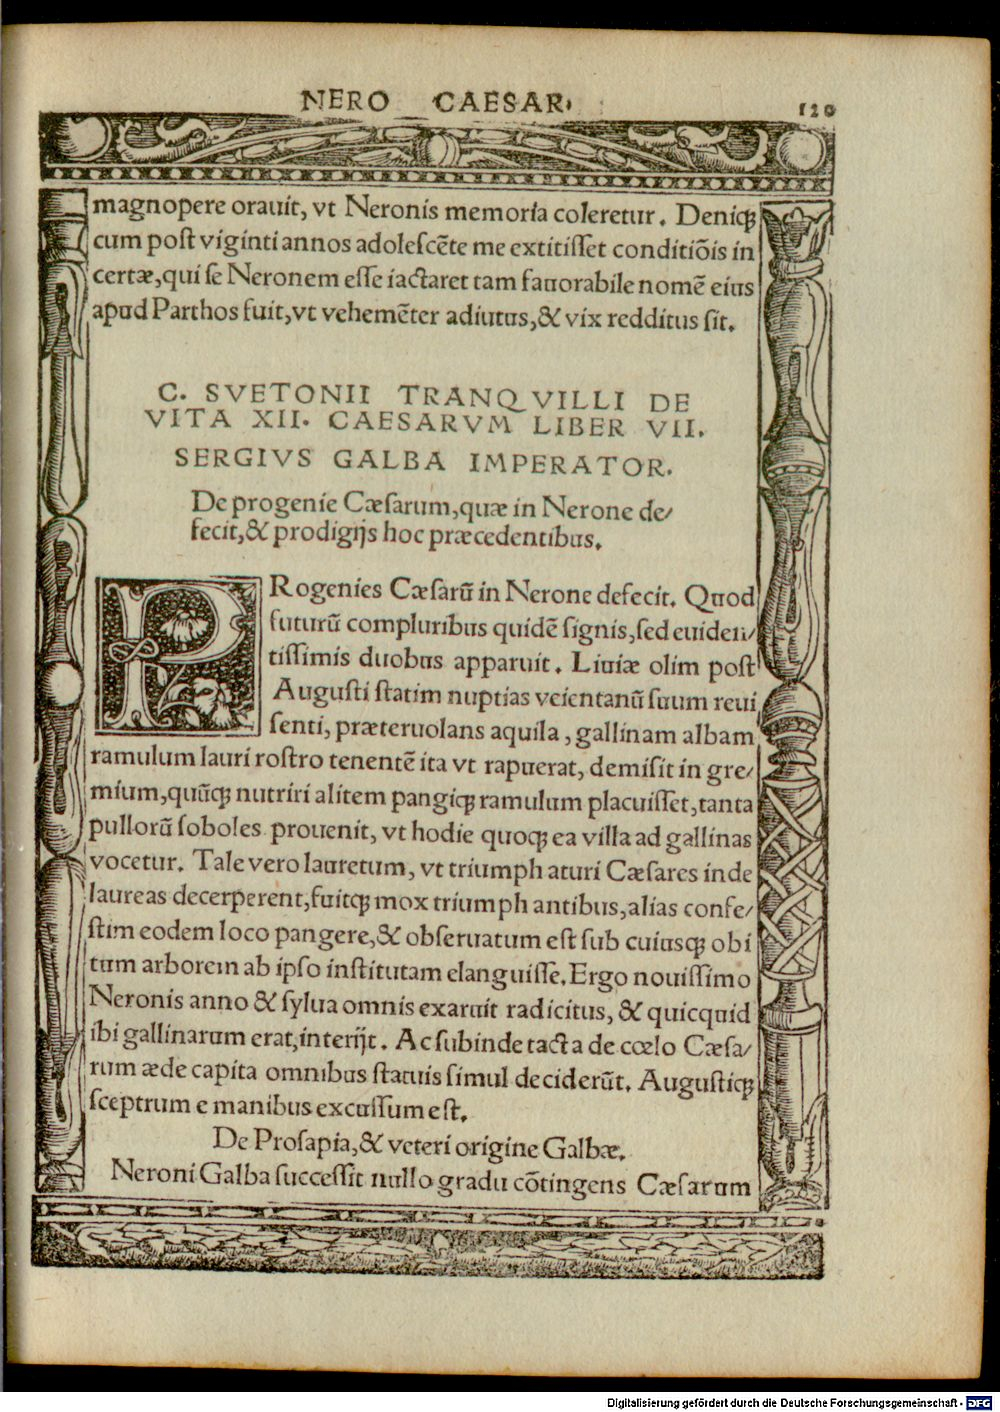 NERO CAESAR.
120
magnopere orauit, vt Neronis memoria coleretur. Deniqꝫ
cum poſt viginti annos adoleſcẽte me extitiſſet conditiõis in
certæ, qui ſe Neronem eſſe iactaret tam fauorabile nomẽ eius
apud Parthos fuit, vt vehemẽter adiutus, & vix redditus ſit.
C. SVETONII TRANQVILLI DE
VITA XII. CAESARVM LIBER VII.
SERGIVS GALBA IMPERATOR.
De progenie Cæſarum, quæ in Nerone de/
fecit, & prodigijs hoc præcedentibus.
PRogenies Cæſarũ in Nerone defecit. Quod
futurũ compluribus quidẽ ſignis, ſed euiden/
tiſſimis duobus apparuit. Liuiæ olim poſt
Auguſti ſtatim nuptias veientanũ ſuum reui
ſenti, præteruolans aquila, gallinam albam
ramulum lauri roſtro tenentẽ ita vt rapuerat, demiſit in gre/
mium, quũqꝫ nutriri alitem pangiqꝫ ramulum placuiſſet, tanta
pullorũ ſoboles prouenit, vt hodie quoqꝫ ea villa ad gallinas
vocetur. Tale vero lauretum, vt triumph aturi Cæſares inde
laureas decerperent, fuitqꝫ mox triumph antibus, alias confe/
ſtim eodem loco pangere, & obſeruatum eſt ſub cuiusqꝫ obi
tum arborem ab ipſo inſtitutam elanguiſſe. Ergo nouiſſimo
Neronis anno & ſylua omnis exaruit radicitus, & quicquid
ibi gallinarum erat, interijt. Ac ſubinde tacta de cœlo Cæſa/
rum æde capita omnibus ſtatuis ſimul deciderũt. Auguſtiqꝫ
ſceptrum e manibus excuſſum eſt.
De Proſapia, & veteri origine Galbæ.
Neroni Galba ſucceſſit nullo gradu cõtingens Cæſarum
Digitalisierung gefördert durch die Deutsche Forschungsgemeinschaft - DFG